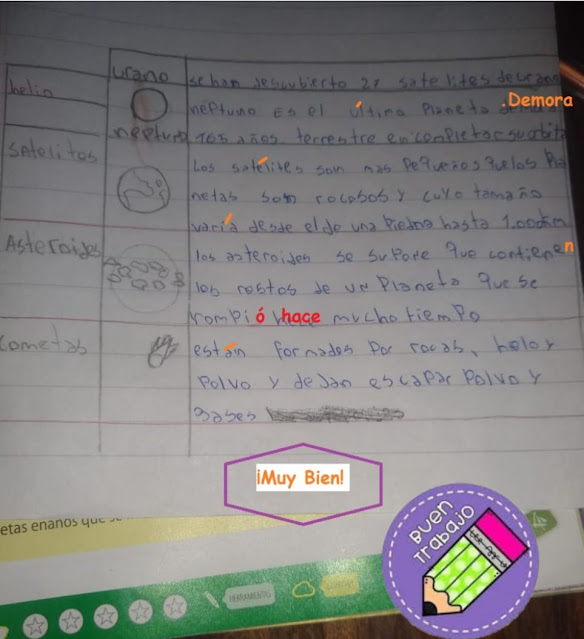 urano se han descubierto 27 satelites de urano
helio neptuno Es el última Planeta .Demora
neptuno 165 años terrestre en completar su orbita
satelitos Los satélites son mas Pequeños que los Pla
netas son rocosos y cuyo tamaño
varía desde el de una Piedra hasta 1.000km
Asteroides los asteroides se supone que contienen
los restos de un Planeta que se
rompió hace mucho tiempo
cometas están formados Por rocas, helo y
Polvo y dejan escapar Polvo y
gases
¡Muy Bien!
BUEN
TRABAJO
etas enanos que
HERRAMIENTAS